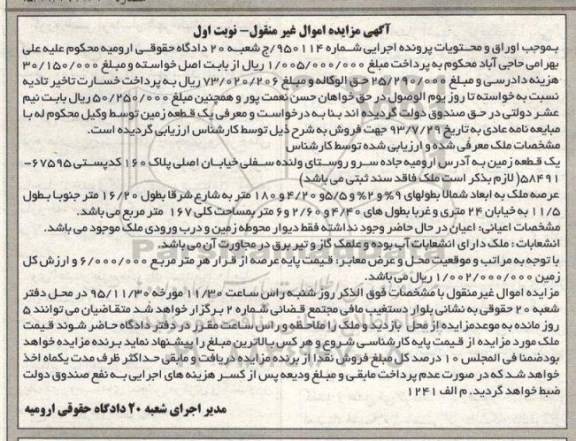 آگهی مزایده اموال غیر منقول - نوبت اول
بموجب اوراق و محتویات پرونده اجرایی شماره ۹۵۰۱۱۴/ج شعبه ۲۰ دادگاه حقوقی ارومیه محکوم علیه علی
بهرامی حاجی آباد محکوم به پرداخت مبلغ ۱/۰۰۵/۰۰۰/۰۰۰ ریال از بابت اصل خواسته و مبلغ ۳۰/۱۵۰/۰۰۰
هزینه دادرسی و مبلغ ۲۵/۲۹۰/۰۰۰ حق الوکاله و مبلغ ۷۳/۰۲۰/۲۰۶ ریال به پرداخت خسارت تاخیر تادیه
نسبت به خواسته تا روز یوم الوصول در حق خواهان حسن نعمت پور و همچنین مبلغ ۵۰/۲۵۰/۰۰۰ ریال بابت نیم
عشر دولتی در حق صندوق دولت گردیده اند بنا به درخواست و معرفی یک قطعه زمین توسط وکیل محکوم له با
مبایعه نامه عادی به تاریخ ۹۳/۷/۲۹ جهت فروش به شرح ذیل توسط کارشناس ارزیابی گردیده است.
مشخصات ملک معرفی شده و ارزیابی شده توسط کارشناس
یک قطعه زمین به آدرس ارومیه جاده سرو روستای ولنده سفلی خیابان اصلی پلاک ۱۶۰ کدپستی ۶۷۵۹۵-
۵۸۴۹۱( لازم بذکر است ملک فاقد سند ثبتی می باشد)
عرصه ملک به ابعاد شمالا بطولهای ۹% و ۲% و ۵/۵و ۴/۲۰ و ۱۸۰ متر به شارع شرقا بطول ۱۶/۲۰ متر جنوبا بطول
۱۱/۵ به خیابان ۲۴ متری و غربا بطول های ۴/۴۰ و ۲/۶۰ و ۶ متر بمساحت کلی ۱۶۷ متر مربع می باشد.
مشخصات اعیانی: اعیان در حال حاضر وجود نداشته فقط دیوار محوطه زمین و درب ورودی ملک موجود می باشد.
انشعابات : ملک دارای انشعابات آب بوده و علمک گاز و تیر برق در مجاورت آن می باشد.
با توجه به مراتب و موقعیت محل و عرض معابر: قیمت پایه عرصه از قرار هر متر مربع ۶/۰۰۰/۰۰۰ و ارزش کل
زمین ۱/۰۰۲/۰۰۰/۰۰۰ ریال می باشد.
مزایده اموال غیر منقول با مشخصات فوق الذکر روز شنبه راس ساعت ۱۱/۳۰ مورخه ۹۵/۱۱/۳۰ در محل دفتر
شعبه ۲۰ حقوقی به نشانی بلوار دستغیب مافی مجتمع قضائی شماره ۲ برگزار خواهد شد متقاضیان می توانند ۵
روز مانده به موعد مزایده از محل بازدید و ملک را ملاحظه و راس ساعت مقرر در دفتر دادگاه حاضر شوند قیمت
ملک مورد مزایده از قیمت پایه کارشناسی شروع و هر کس بالاترین مبلغ را پیشنهاد نماید برنده مزایده خواهد
بود ضمنا فی المجلس ۱۰ درصد کل مبلغ فروش نقدا از برنده مزایده دریافت و مابقی حداکثر ظرف مدت یکماه اخذ
خواهد شد که در صورت عدم پرداخت مابقی و مبلغ ودیعه پس از کسر هزینه های اجرایی به نفع صندوق دولت
ضبط خواهد گردید. م الف ۱۲۴۱
مدیر اجرای شعبه ۲۰ دادگاه حقوقی ارومیه